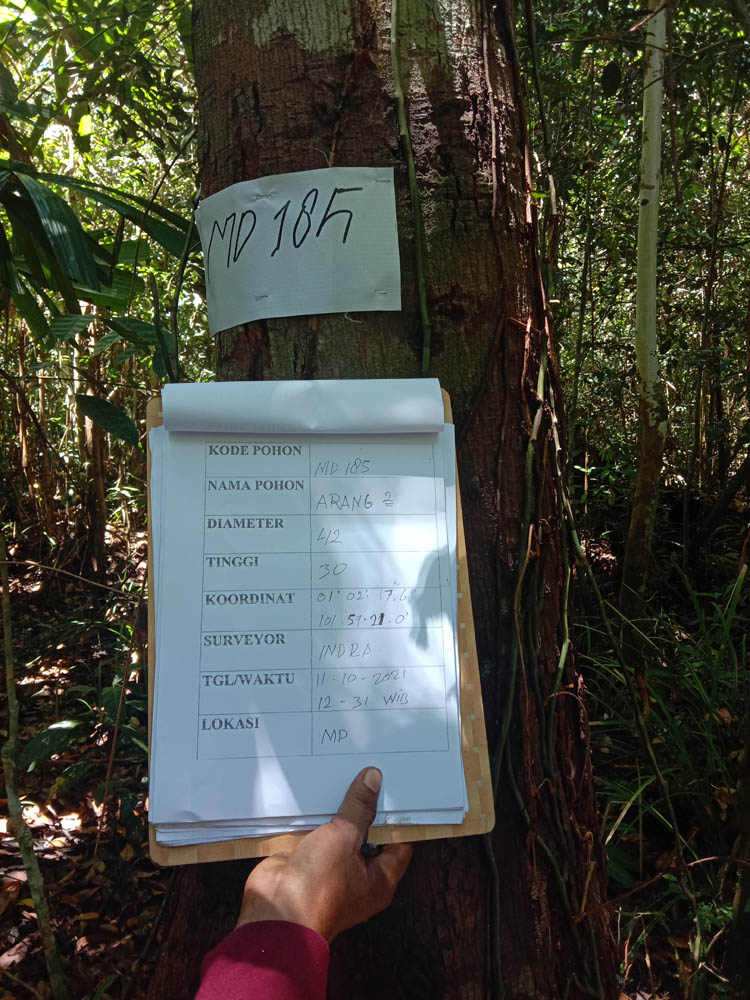 MD 185
KODE POHON MD 185
NAMA POHON ARANG 2
DIAMETER 42
TINGGI 30
KOORDINAT 01° 02' 17,6"
101.59.21.0"
SURVEYOR INDRA
TGL/WAKTU 11-10-2021
12-31 WIB
LOKASI MD